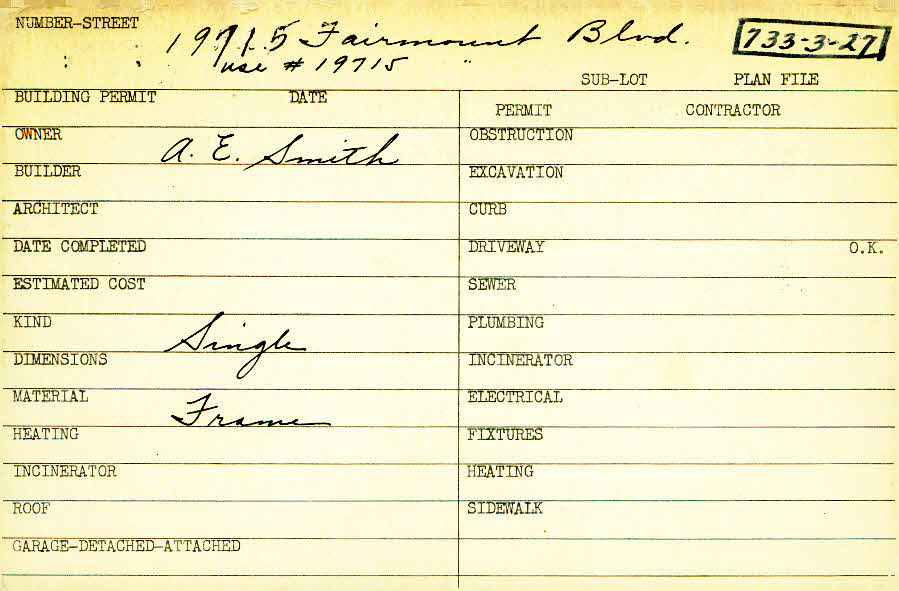 NUMBER-STREET
19715 Fairmount Blvd.
733-3-27
: : use # 19715 "
SUB-LOT PLAN FILE
BUILDING PERMIT DATE
PERMIT CONTRACTOR
OWNER A. E. Smith
OBSTRUCTION
BUILDER
EXCAVATION
ARCHITECT
CURB
DATE COMPLETED
DRIVEWAY O.K.
ESTIMATED COST
SEWER
KIND Single
PLUMBING
DIMENSIONS
INCINERATOR
MATERIAL Frame
ELECTRICAL
HEATING
FIXTURES
INCINERATOR
HEATING
ROOF
SIDEWALK
GARAGE-DETACHED-ATTACHED